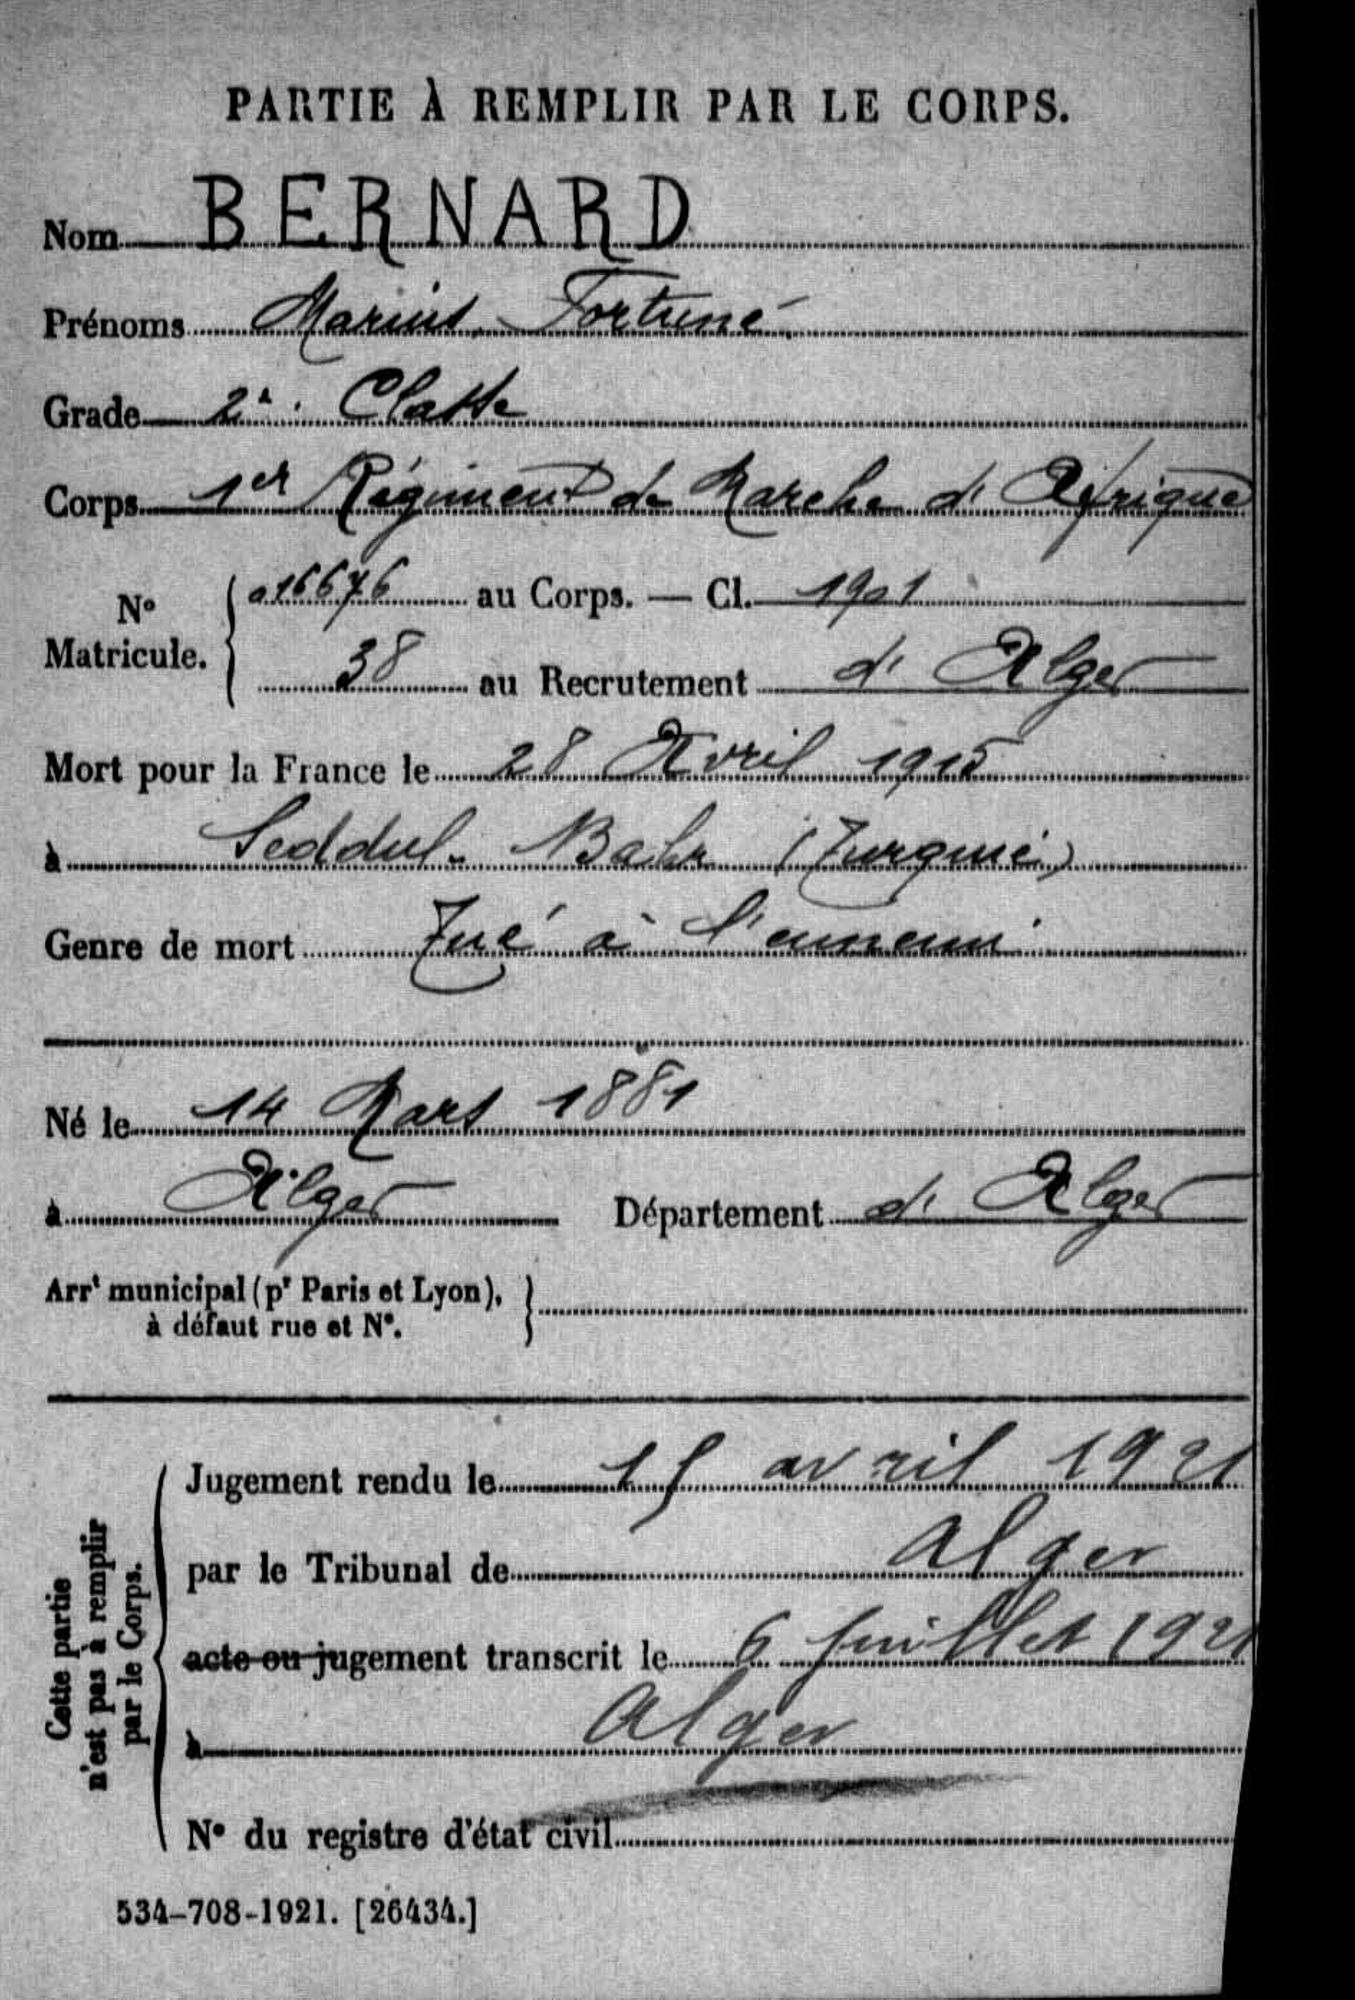 PARTIE À REMPLIR PAR LE CORPS.
Nom BERNARD
Prénoms Marius, Fortuné
Grade 2e. Classe
Corps 1er Régiment de Marche d'Afrique
No Matricule. { 016676 au Corps. — Cl. 1901
38 au Recrutement d'Alger
Mort pour la France le 28 Avril 1915
à Seddul-Bahr (Turquie)
Genre de mort Tué à l'ennemi
Né le 14 Mars 1881
à Alger Département d'Alger
Arrt municipal (pr Paris et Lyon), }
à défaut rue et No.
Cette partie
n'est pas à remplir
par le Corps.
Jugement rendu le 15 avril 1921
par le Tribunal de Alger
acte ou jugement transcrit le 6 juillet 1921
à Alger
No du registre d'état civil
534-708-1921. [26434.]